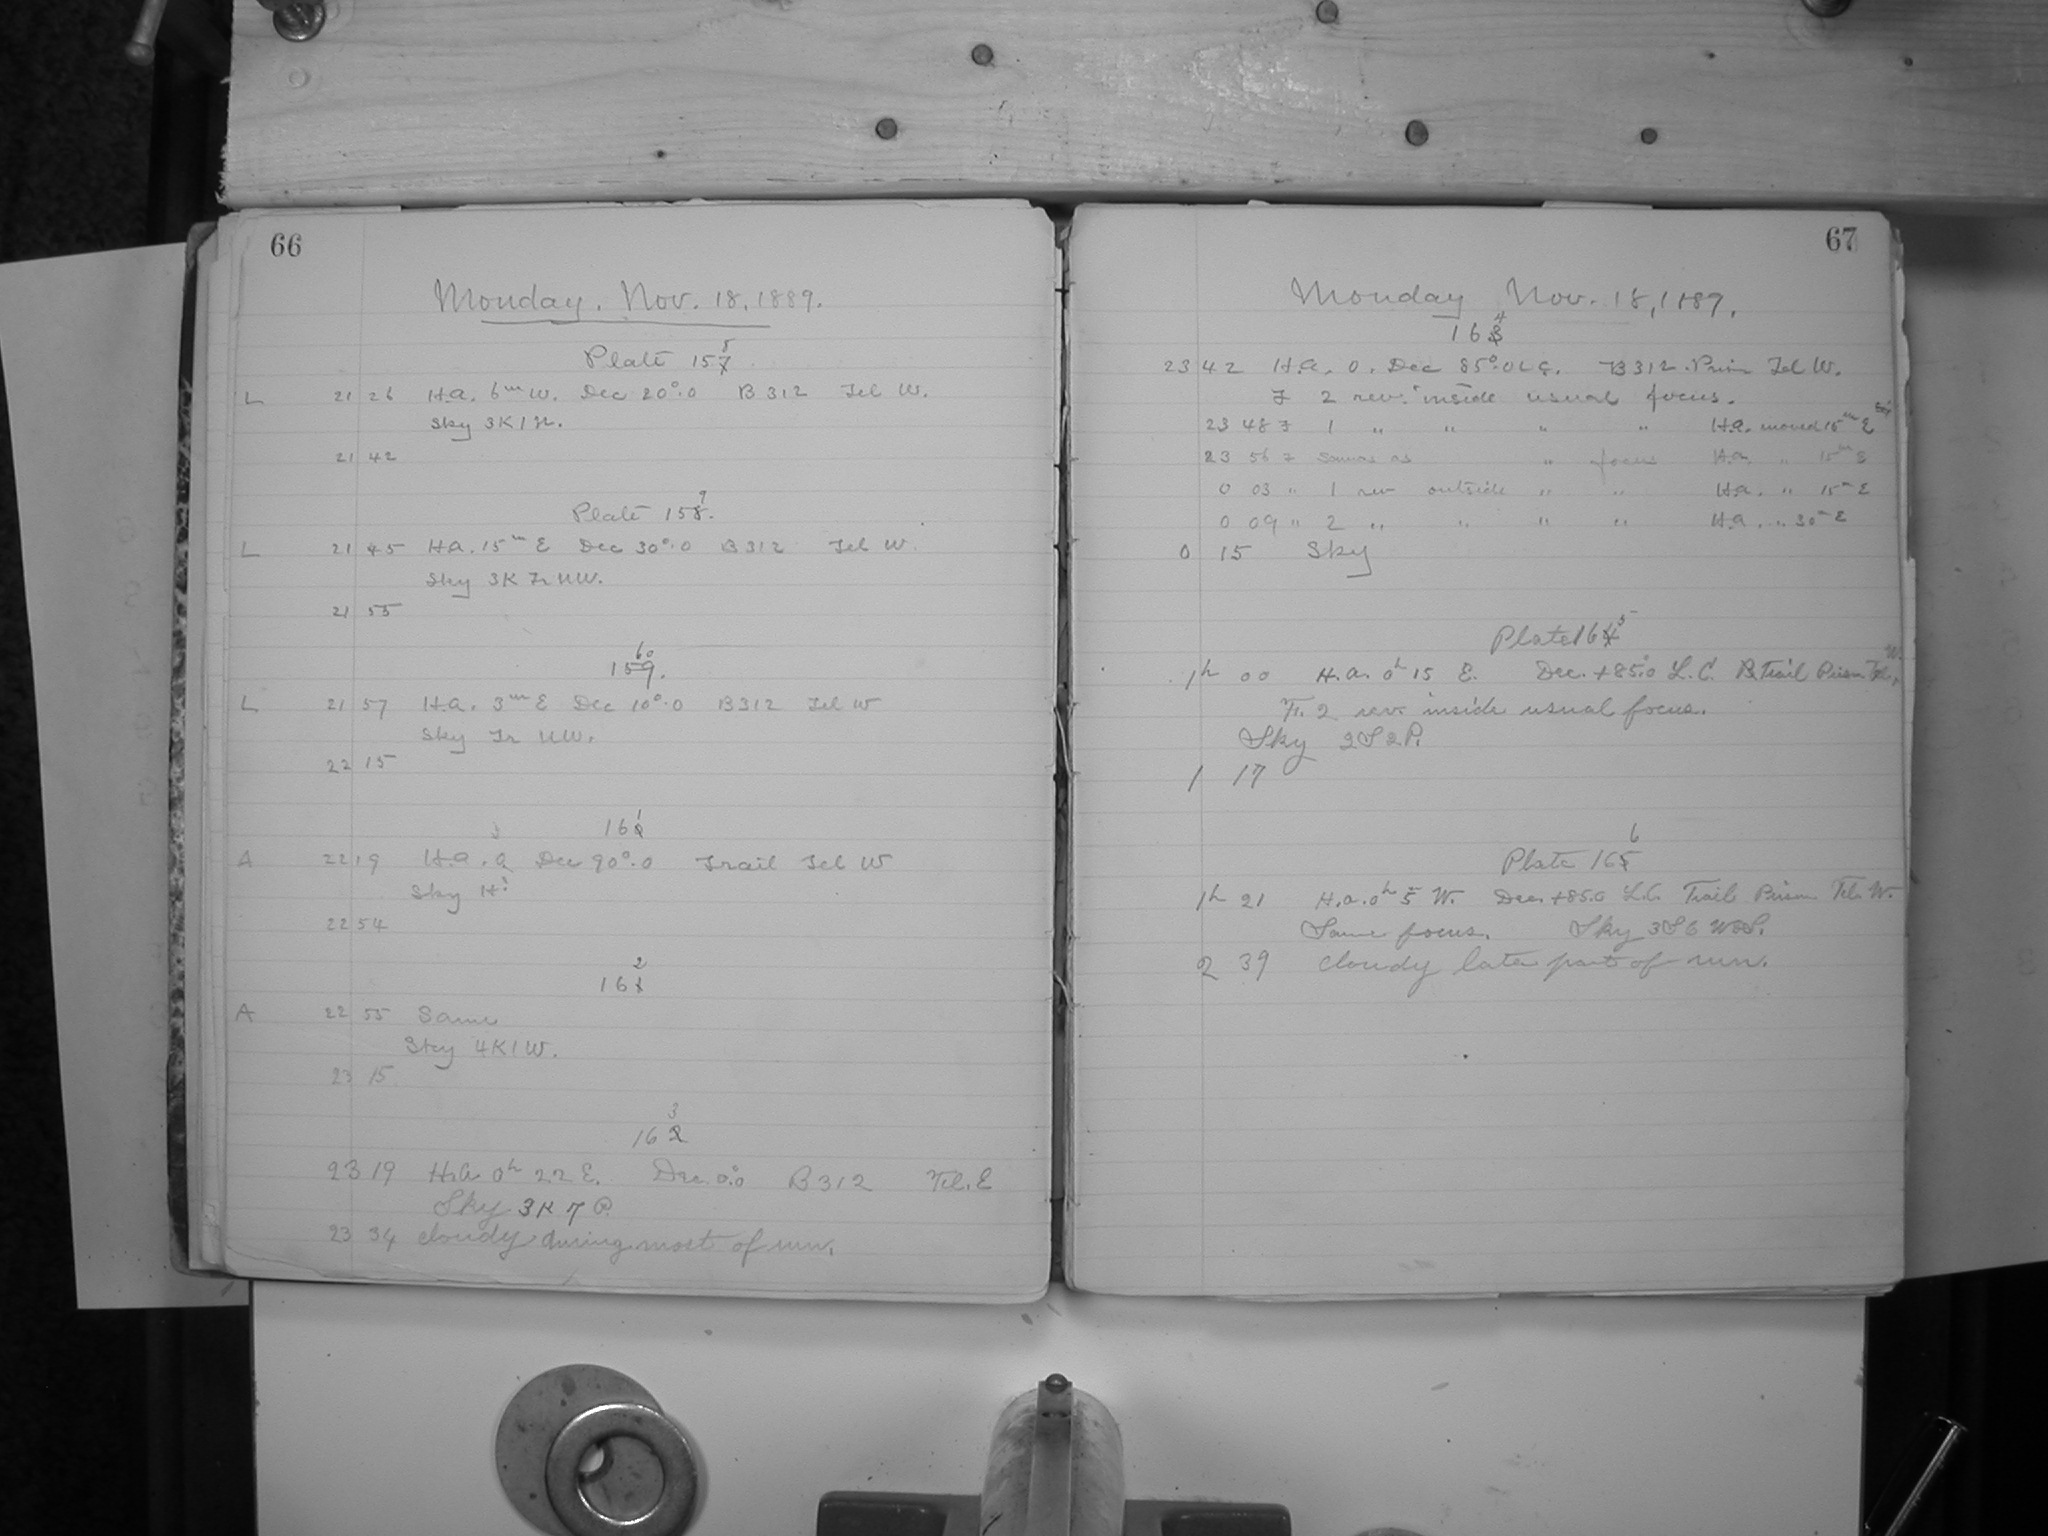 66
Monday, Nov. 18, 1889.
8
Plate 157
L 21 26 H.a. 6m W. Dec 20°.0 B 312 Tel W.
Sky 3K1N.
21 42
9
Plate 158.
L 21 45 H.a. 15m E Dec 30°.0 B 312 Tel W.
Sky 3K NW.
21 55
60
159.
L 21 57 H.a. 3m E Dec 10°.0 B 312 Tel W
Sky NW.
22 15
1
160
A 22 19 H.a. 0 Dec 90°.0 Trail Tel W
Sky
22 54
2
161
A 22 55 Same
Sky 4K1W.
23 15
3
162
23 19 H.a. 0h 22 E. Dec. 0°.0 B 312 Tel. E
Sky 3K7P
23 34 cloudy during most of run.
67
Monday Nov. 18, 1889.
4
163
23 42 H.a. 0. Dec 85°.0 L.C. B 312. Prism Tel W.
F 2 rev. inside usual focus.
23 48 F 1 " " " " H.a. moved 15m E
23 56 F same as " focus H.a. " 15m E
0 03 " 1 rev outside " " H.a. " 15m E
0 09 " 2 " " " " H.a. " 30m E
0 15 Sky
5
Plate 164
W.
1h 00 H.a. 0h 15 E. Dec. +85°.0 L.C. B. Trail Prism Tel.
F. 2 rev. inside usual focus.
Sky 2S2P.
1 17
6
Plate 165
1h 21 H.a. 0h 5 W. Dec. +85.0 L.C. Trail Prism Tel. W.
Same focus. Sky 3S6
2 39 cloudy later part of run.